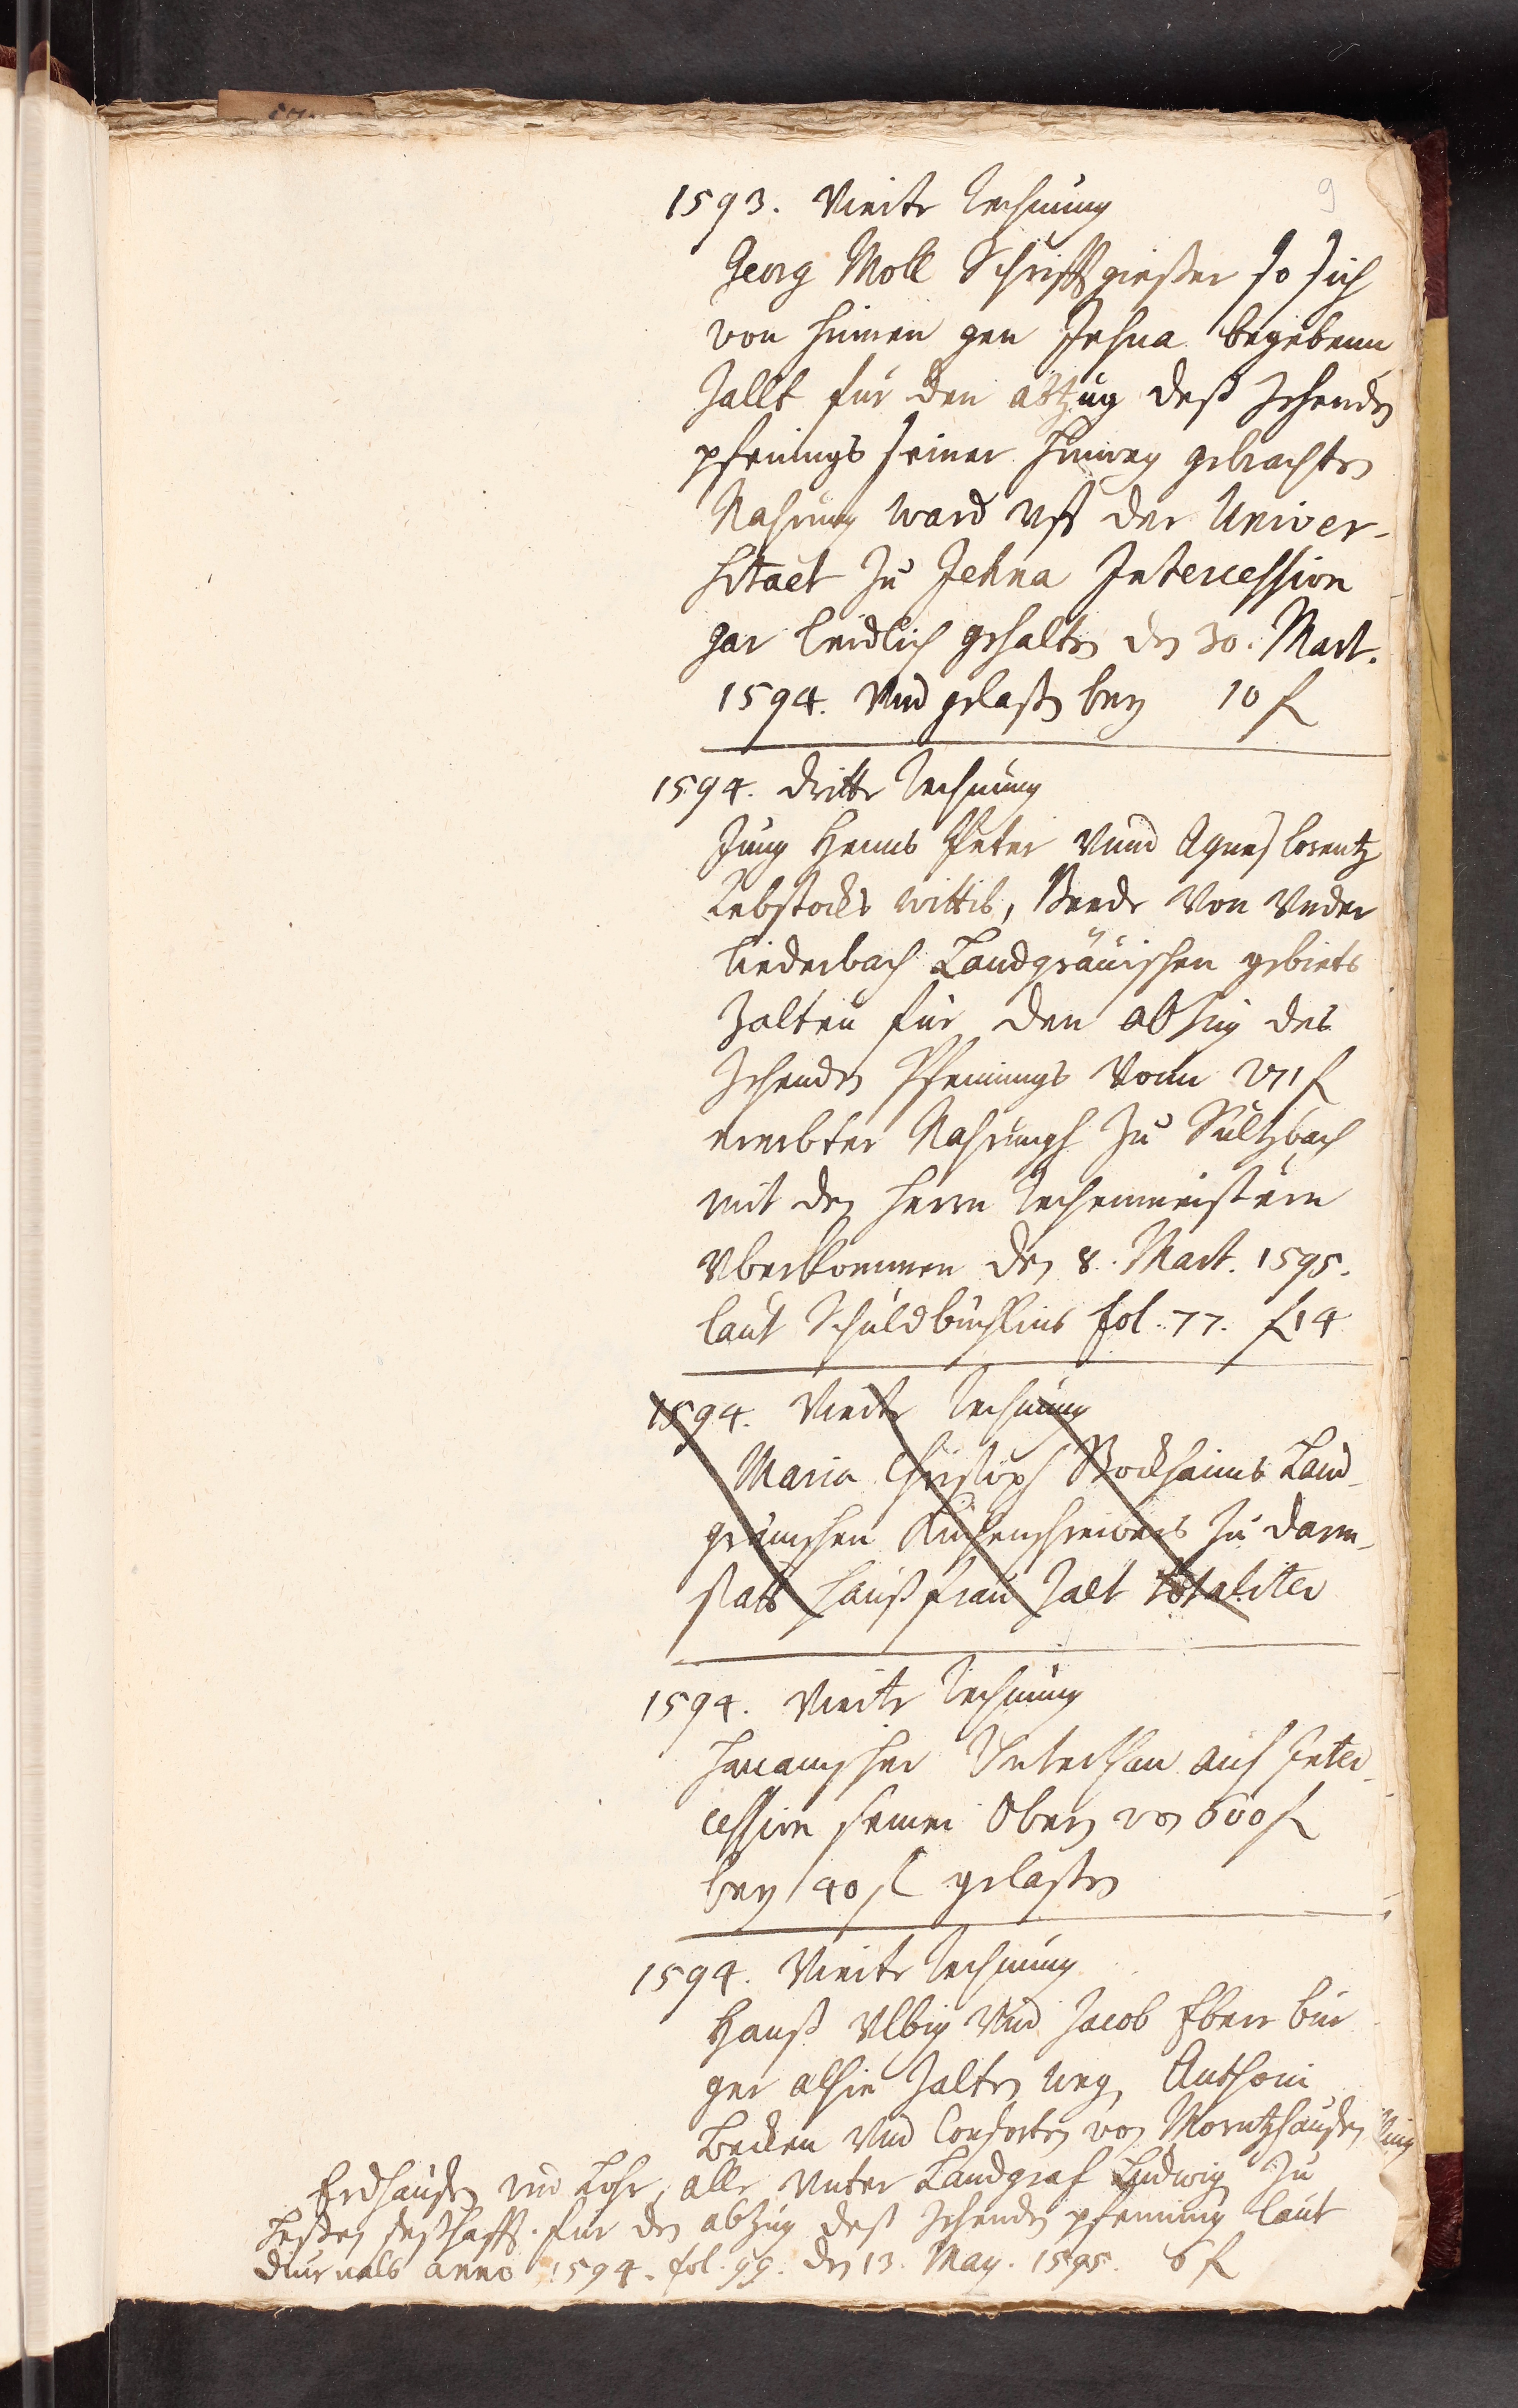 9
1593. Vierte Rechnung
Georg Moll Schrifftgießer so sich
von hinnen gen Jehna begebenn
zallt für den abtzug deß zehenden
pfenings seiner hinweg gebrachten
Nahrung ward vff der Univer-
sitaet zu Jehna Intercession
gar leidlich gehalten den 30. Mart.
1594. Vnd gelaßen bey 10 f
1594. dritte Rechnung
Jung Henns Peter Vnnd Agnes Lorentz
Rebstocks wittib, Beede Von Vnder
liederbach Landgräuischen gebiets
zalten für den abzug des
zehenden Pfennings Vonn f
ererbter Nahrungh zu Sultzbach
mit den herrn Rechenmeistern
Vberkommen den 8. Mart. 1595.
laut Schuldbüchlins fol. 77. f 14
1594. Vierte Rechnung
Maria Christoph Bockhaims Land-
gräuischen Küchenschreibers zu Darm-
statt haußfrau zalt totaliter
1594. Vierte Rechnung
Hanauischer Vnterthan auf Inter-
cession seiner Obern von 600 f
bey 40 f gelaßen
1594. Vierte Rechnung
Hanß Vlbig Vnd Jacob Eberr bür
ger alhie zalten weg. Anthoni
Becken Vnd Consorten von Morntzhausen
Erdhausen vnd Lohr, alle Vnter Landgraf Ludwig zu
Heßen seßhafft. für den abzug deß zehenden pfenning laut
diurnals anno 1594. fol. 99. den 13. May. 1595. 6 f